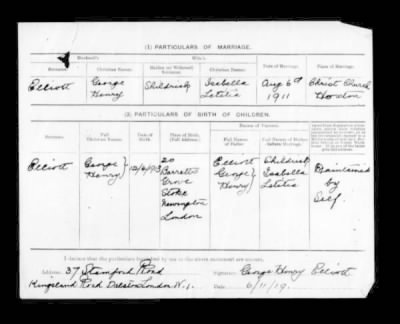 (1) PARTICULARS OF MARRIAGE.
Husband's
Wife's
Surname. Christian Names. Maiden (or Widowed) Surname. Christian Names. Date of Marriage. Place of Marriage.
Elliott George Henry Isabella Letitia Aug 6th 1911 Christ Church Hoxton
(2) PARTICULARS OF BIRTH OF CHILDREN.
Surname. Full Christian Names. Date of Birth. Place of Birth. (Full Address.) Full Names of Father. Full Names of Mother before Marriage.
Elliott George Henry 20 Barretts Grove Stoke Newington London Elliott George Henry Isabella Letitia Maintained by Self.
I declare that the particulars furnished by me in the above statement are correct.
Address 37 Stamford Road Signature George Henry Elliott
Kingsland Road Dalston London N.1. Date 6/11/19.